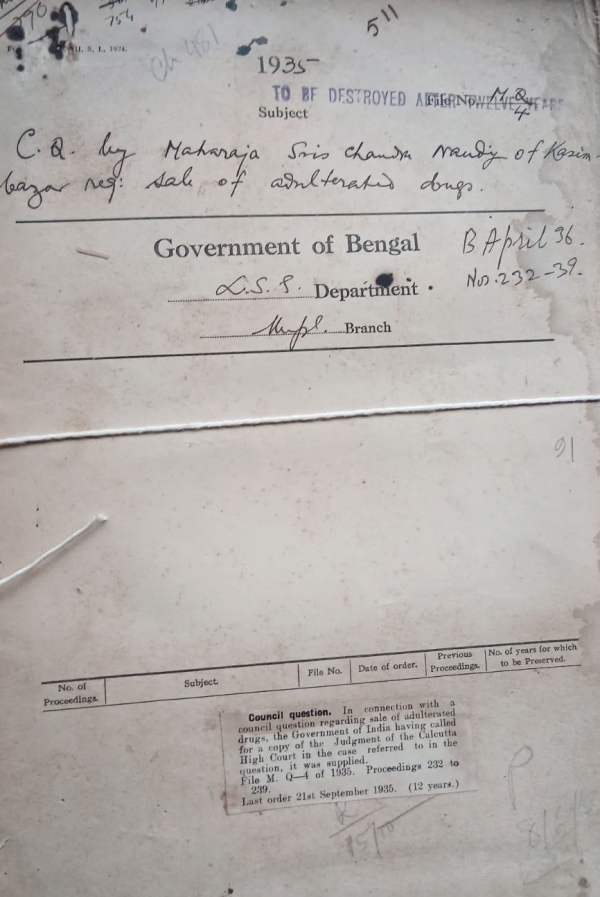 790
754
5 11
Ch 481
1935
TO BE DESTROYED AFTER TWELVE YEARS
File No. M. Q/4
Subject
C. Q. by Maharaja Sris Chandra Nandy of Kasim-
bazar reg: sale of adulterated drugs.
Government of Bengal
B April 36.
L.S.G. Department.
Nos. 232-39.
Branch
91
No. of Proceedings.
Subject.
File No.
Date of order.
Previous Proceedings.
No. of years for which to be Preserved.
Council question. In connection with a
council question regarding sale of adulterated
drugs, the Government of India having called
for a copy of the Judgment of the Calcutta
High Court in the case referred to in the
question, it was supplied.
File M. Q—4 of 1935. Proceedings 232 to
239.
Last order 21st September 1935. (12 years.)
P